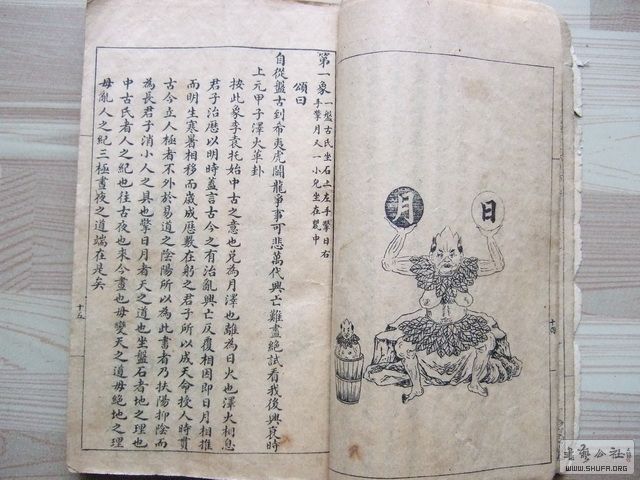 第一象 一盤古氏坐石上左手擎日右
手擎月又一小兒坐在甕中
頌曰
自從盤古到希夷虎鬪龍爭事可悲萬代興亡難盡絕試看我後興衰時
上元甲子澤火革卦
按此象李袁托始中古之意也兌為月澤也離為日火也澤火相息
君子治曆以明時蓋言古今之有治亂興亡反覆相因即日月相推
而明生寒暑相移而歲成曆數在躬之君子所以成天命授人時貫
古今立人極者不外於易道之陰陽所以為此書者乃扶陽抑陰而
為長君子消小人之具也擎日月者天之道也坐盤石者地之理也
中古氏者人之紀也往古夜也來今晝也毋變天之道毋絕地之理
毋亂人之紀三極晝夜之道端在是矣
十五
月
日
十四
WWW.SHUFA.ORG